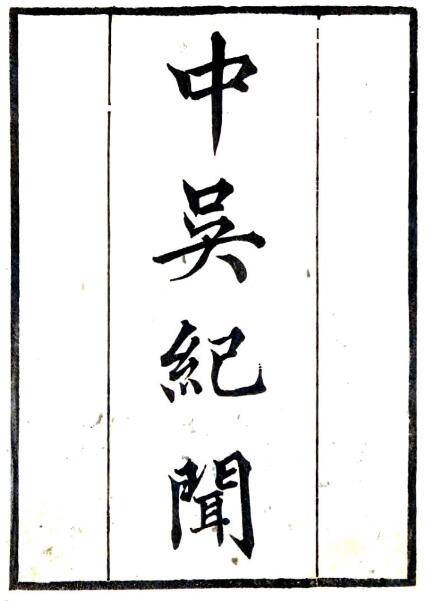 中吳紀聞